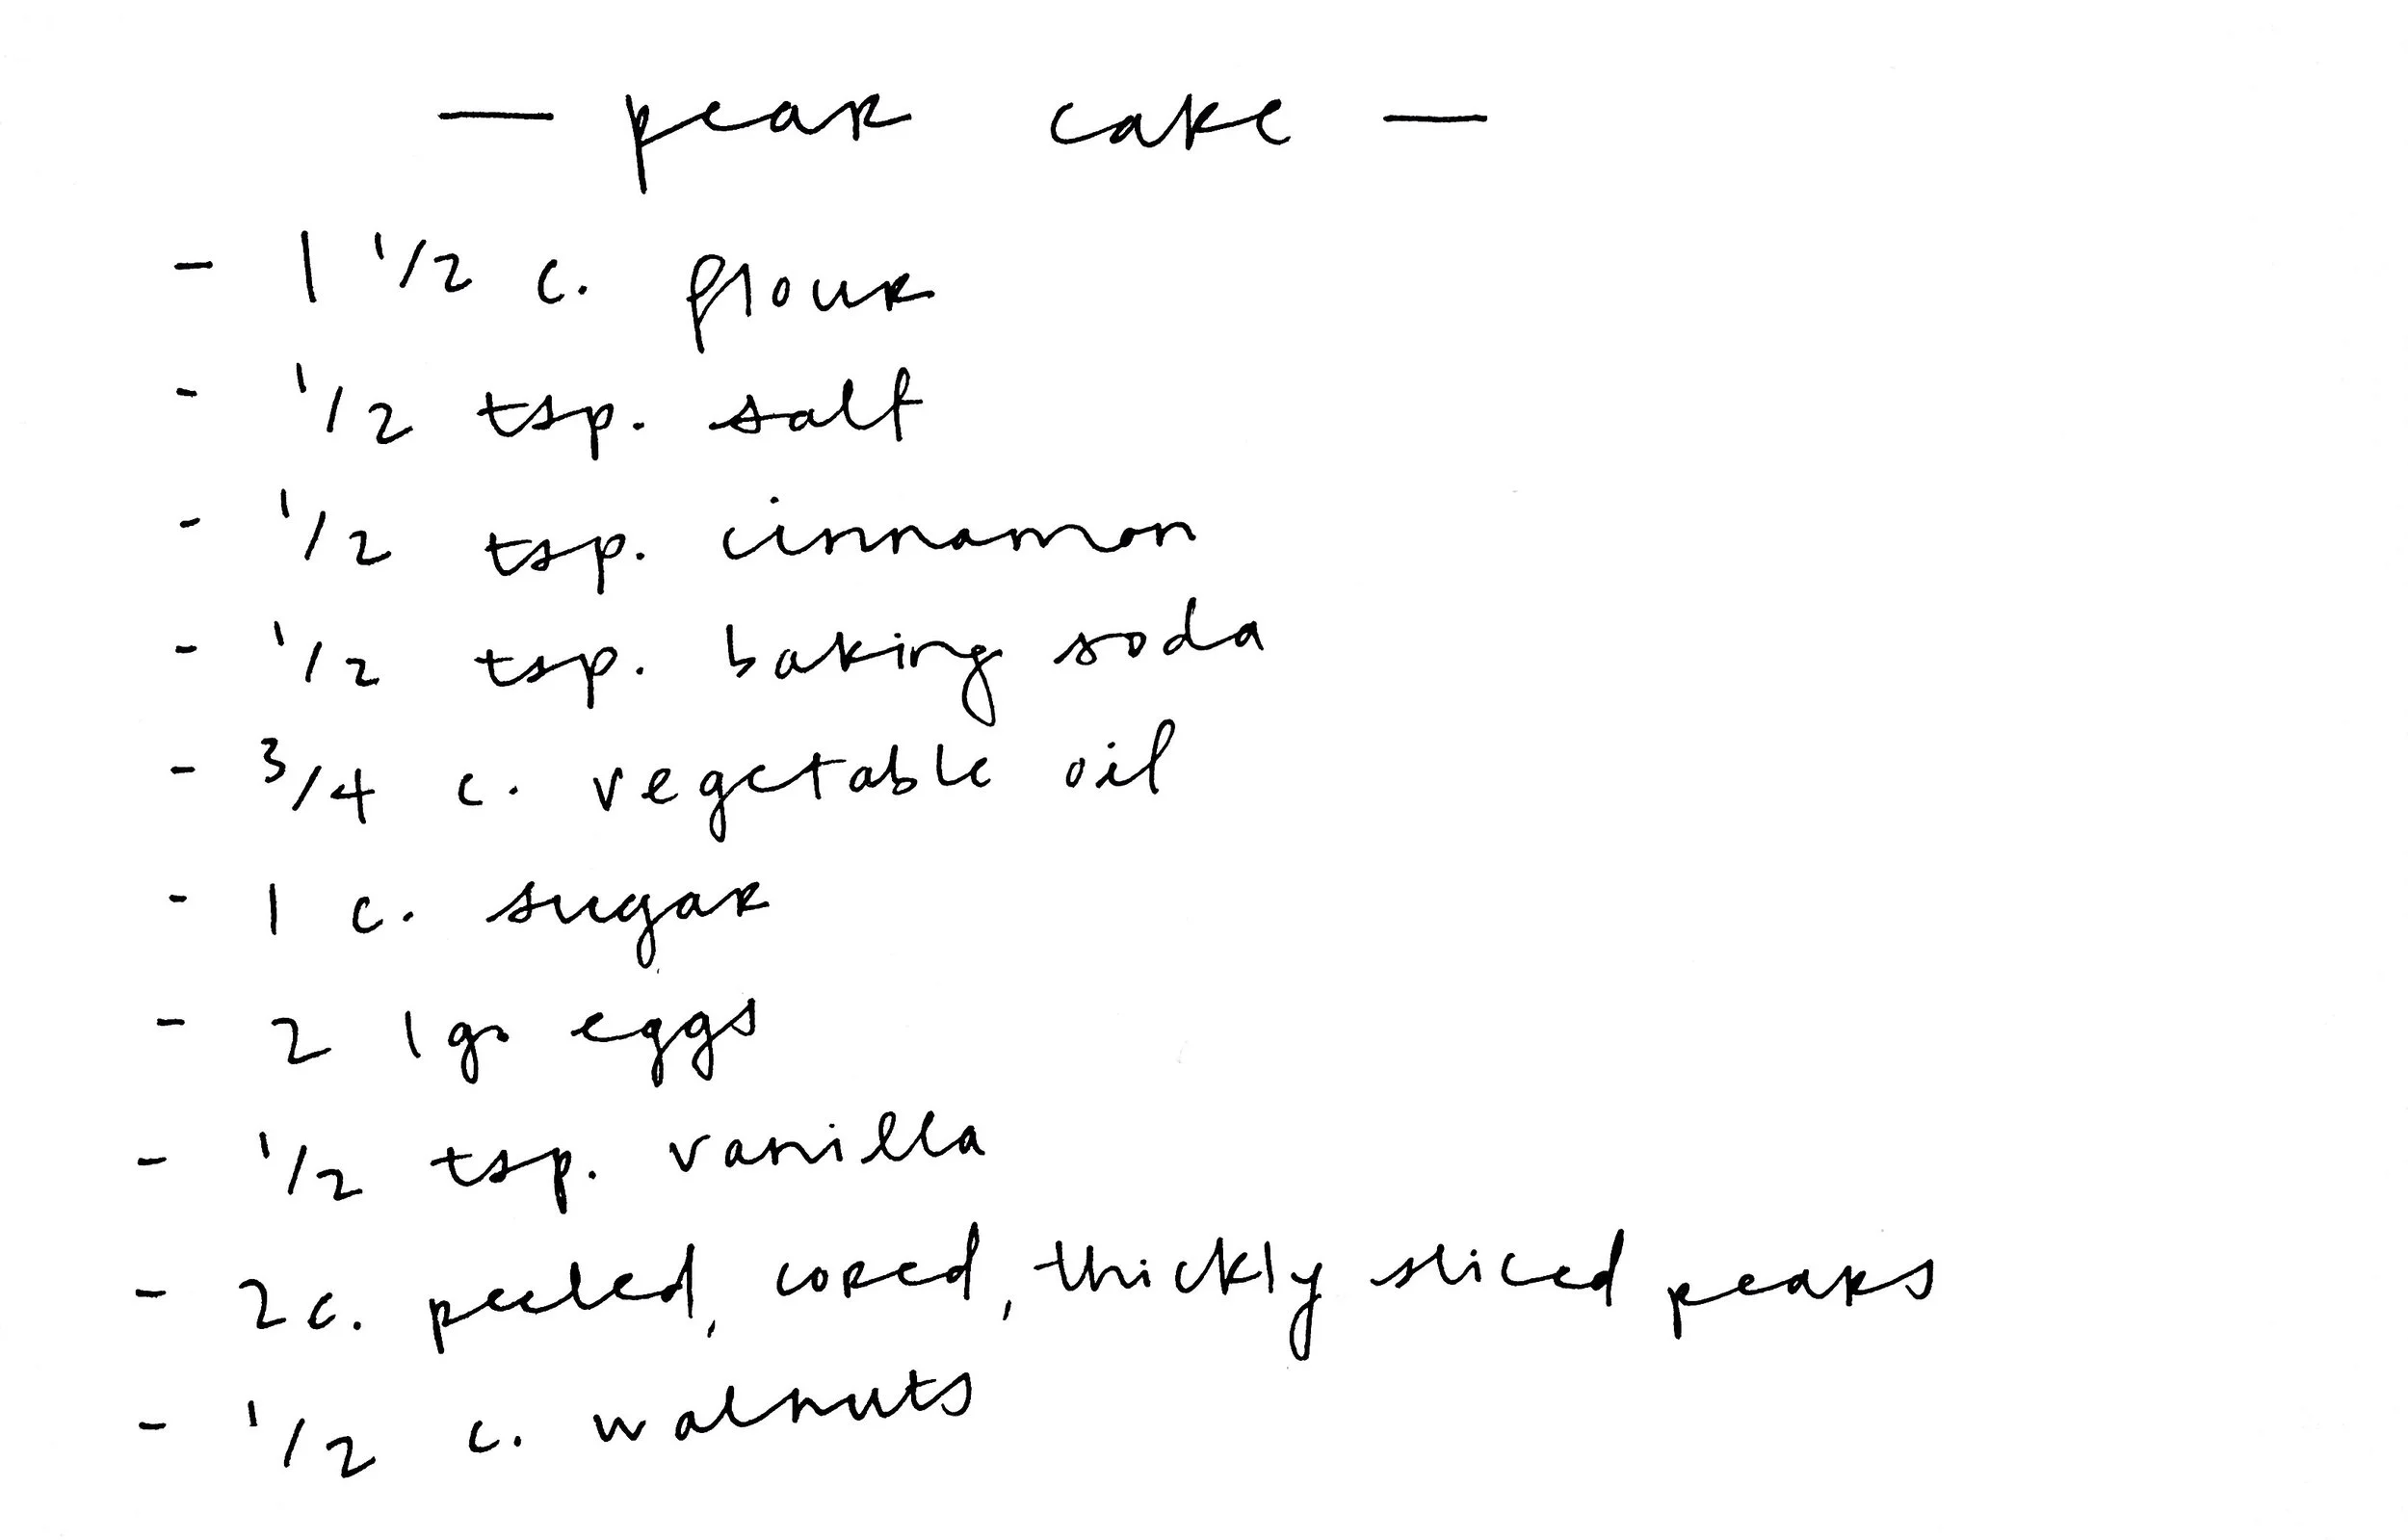 — pear cake —
- 1 1/2 c. flour
- 1/2 tsp. salt
- 1/2 tsp. cinnamon
- 1/2 tsp. baking soda
- 3/4 c. vegetable oil
- 1 c. sugar
- 2 lg. eggs
- 1/2 tsp. vanilla
- 2 c. peeled, cored, thickly sliced pears
- 1/2 c. walnuts